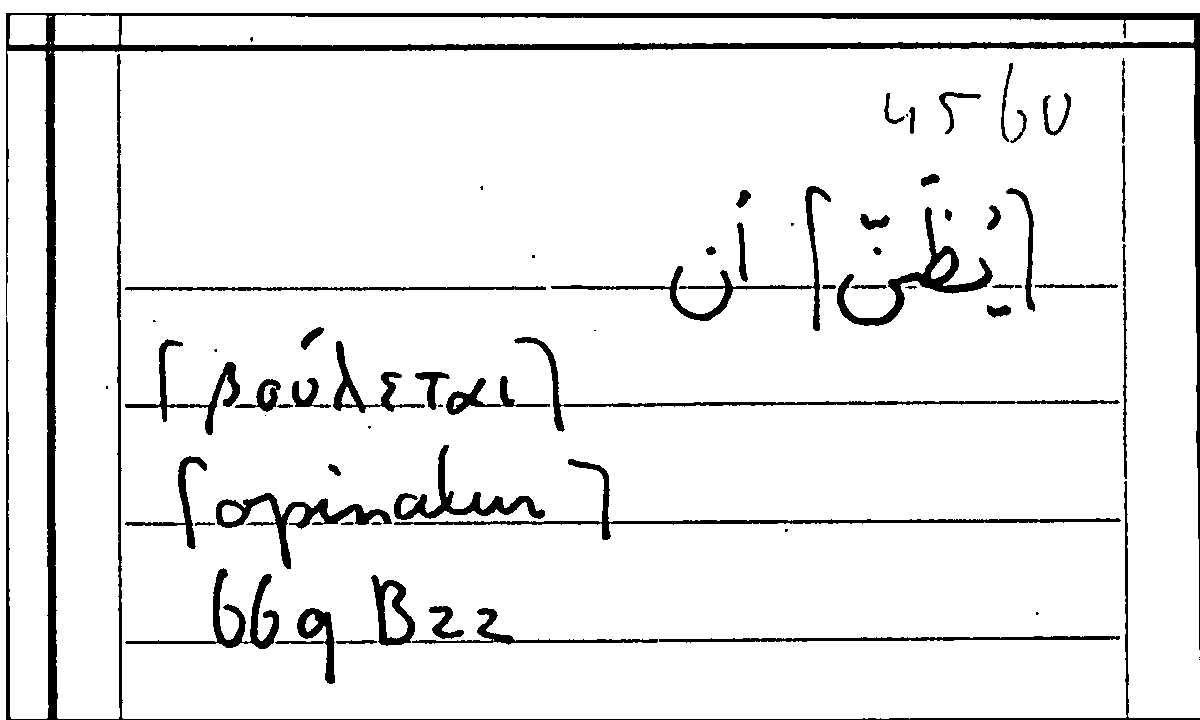 4560
[يُظَنّ] أن
[βούλεται]
[opinatur]
669 B22